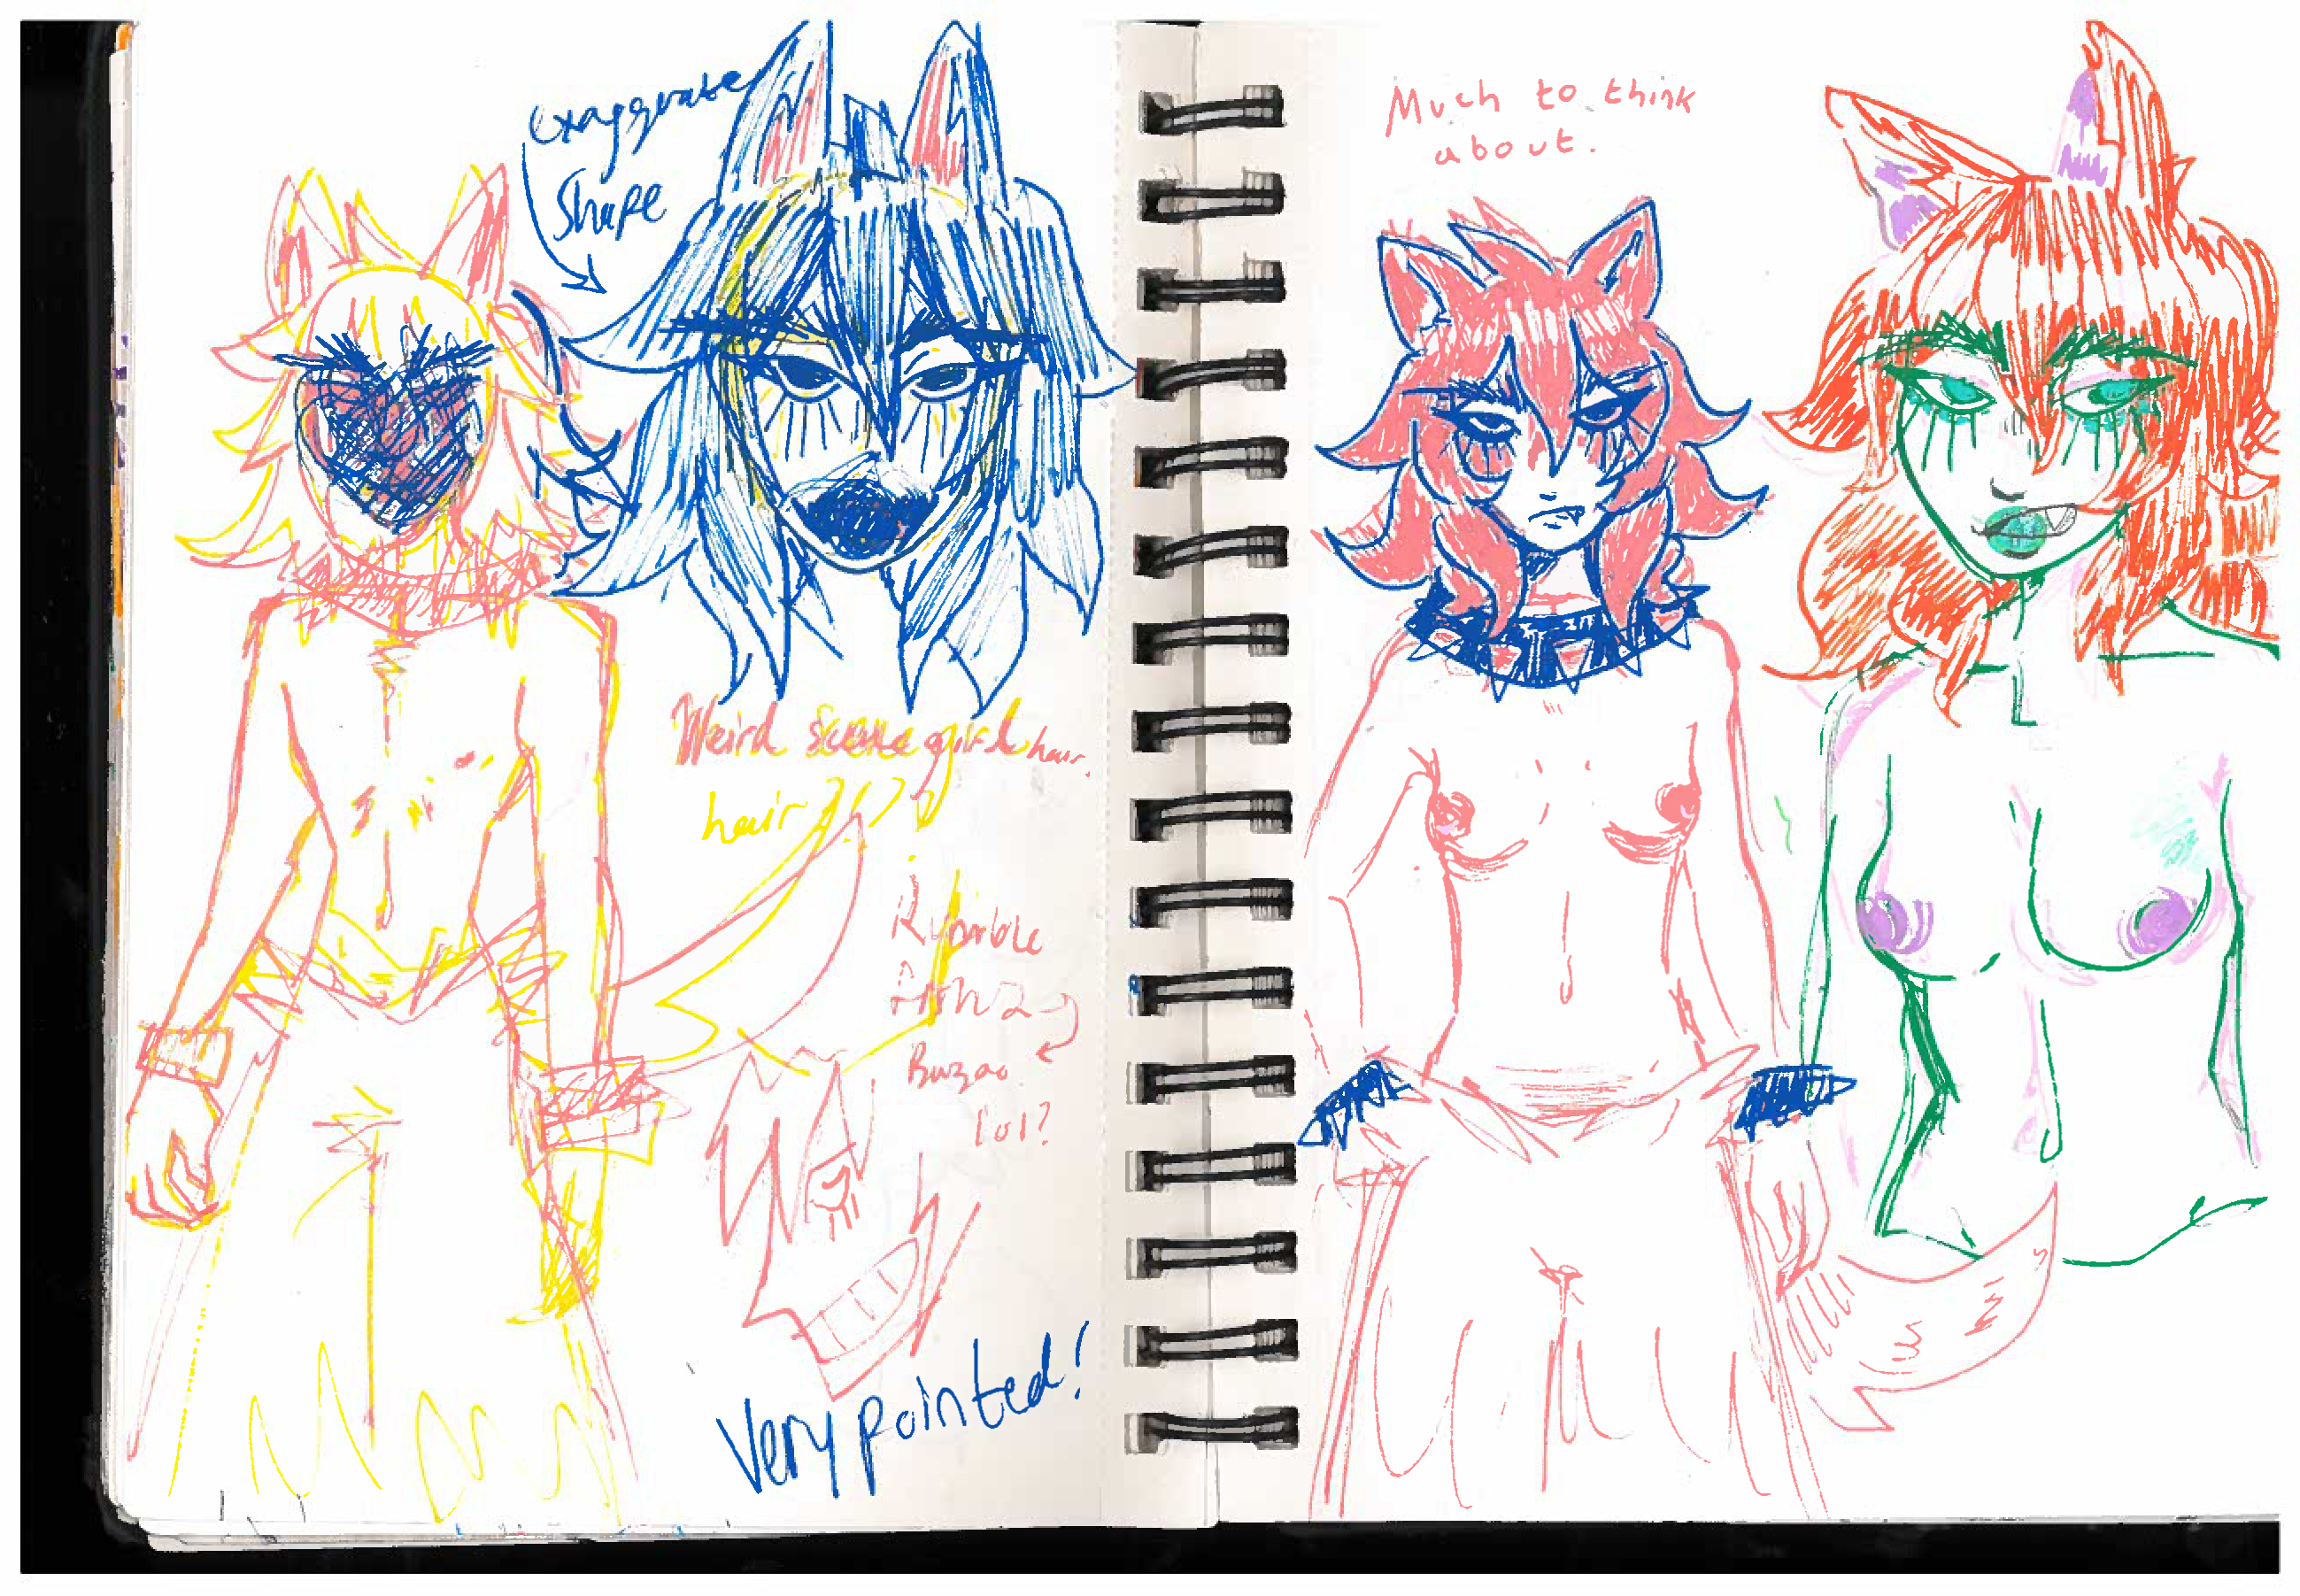 exaggerate
shape
Weird scene girl hair.
hair
Rumble
Buzao
lol?
Very pointed!
Much to think
about.